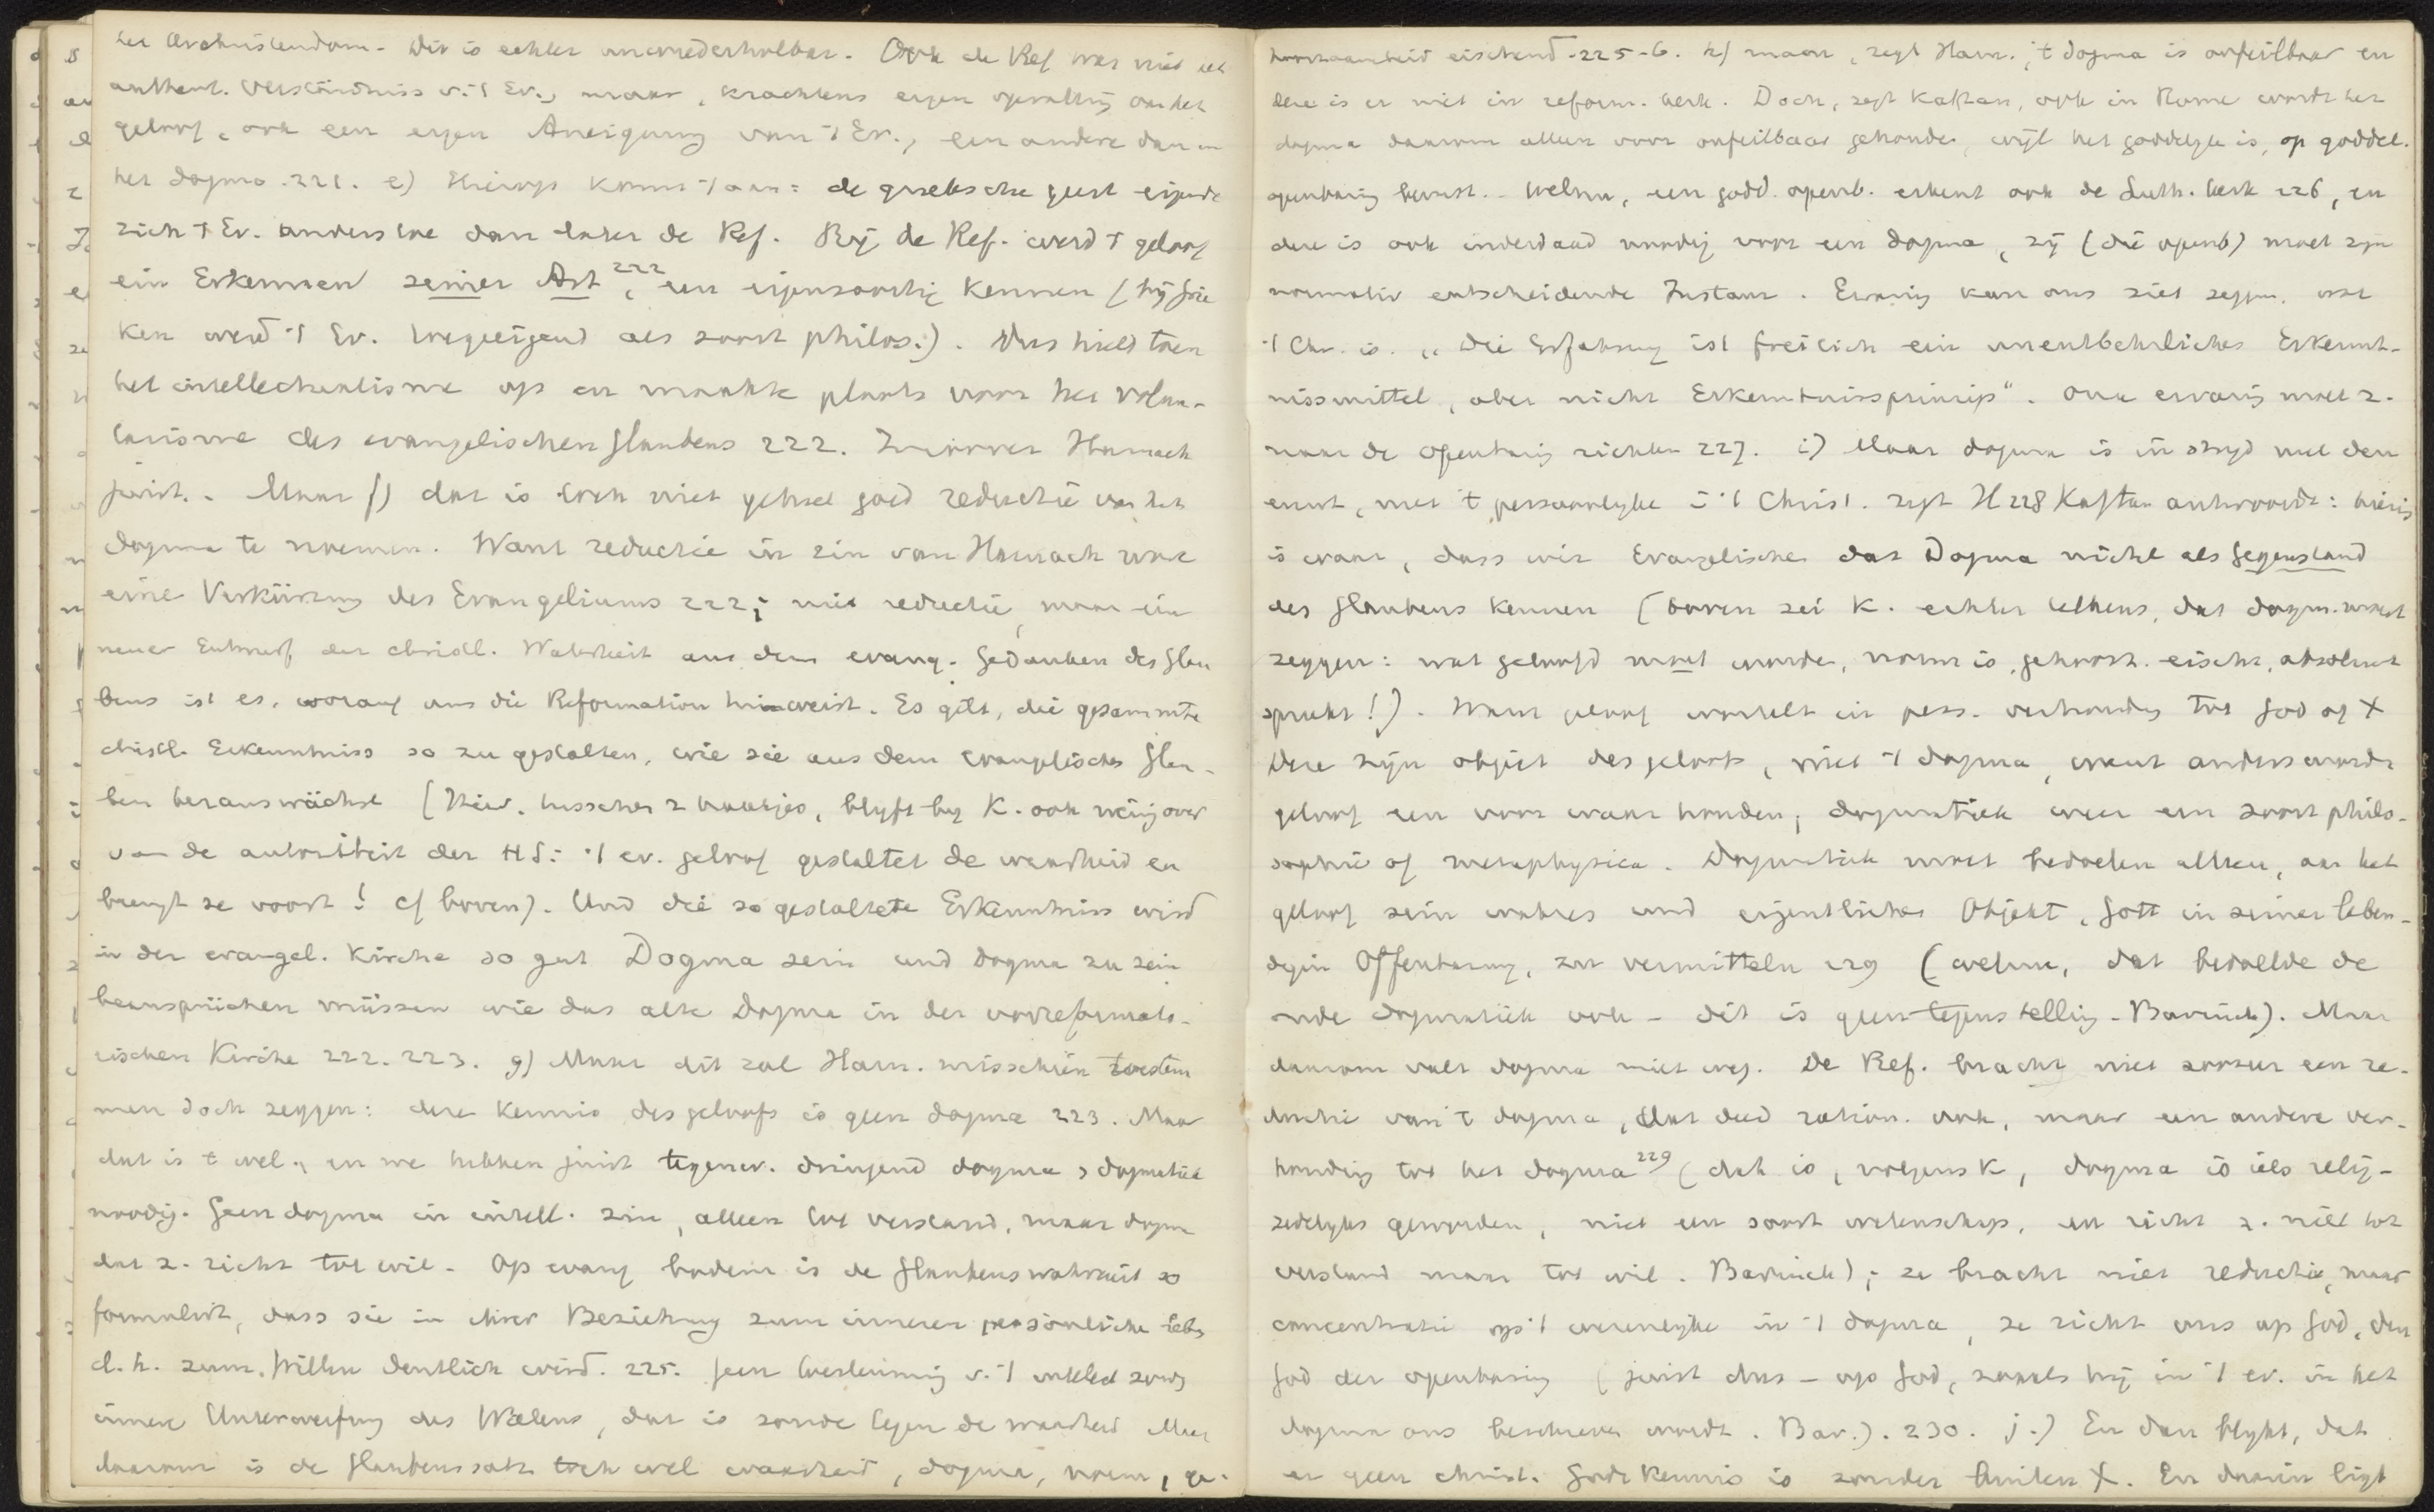 het Urchristendom. Dit is echter unwiederholbar. Ook de Ref was niet
authent. Verständniss v. 't Ev., maar, krachtens eigen opvatting van het
geloof, ook een eigen Aneignung van 't Ev., een andere dan in
het dogma. 221. e) Hierop komt 't aan: de grieksche geest eigende
zich 't Ev. anders toe dan later de Ref. Bij de Ref. werd 't geloof
ein Erkennen seiner Art 222, een eigensoortig kennen (bij Grie
ken werd 't Ev. toegeëigend als soort philos.). Dus hield toen
het intellectualisme op en maakte plaats voor het volun-
tarisme des evangelischen Glaubens 222. Zoover Harnack
juist. - Maar f) dat is toch niet geheel goed reductie van het
dogma te noemen. Want reductie in zin van Harnack ware
eine Verkürzung des Evangeliums 222; niet reductie, maar ein
neuer Entwurf der christl. Wahrheit aus dem evang. Gedanken des Glau
bens ist es, worauf uns die Reformation hinweist. Es gilt, die gesammte
christl. Erkenntniss so zu gestalten, wie sie aus dem evangelischen Glau-
ben herauswächst (Hier, tusschen 2 haakjes, blyft by K. ook weinig over
van de autoriteit der HS: 't ev. geloof gestaltet de waarheid en
brengt ze voort! cf boven). Und die so gestaltete Erkenntniss wird
in der evangel. Kirche so gut Dogma sein und Dogma zu sein
beanspruchen müssen wie das alte Dogma in der vorreformato-
rischen Kirche 222. 223. g) Maar dit zal Harn. misschien toestem
men doch zeggen: deze kennis des geloofs is geen dogma 223. Maar
dat is 't wel, en we hebben juist tegenw. dringend dogma, dogmatiek
noodig. Geen dogma in intell. zin, alleen tot verstand, maar dogma
dat z. richt tot wil. Op evang bodem is de Glaubenswahrheit so
formulirt, dass sie in ihrer Beziehung zum inneren persönlichen Leben
d. h. zum Willen deutlich wird. 225. Geen verleuning v. 't intellect zonder
innere Unterwerfung des Willens, dat is zonde tegen de waarheid Maar
daarom is de Glaubenssatz toch wel waarheid, dogma, norm, ge-
hoorzaamheid eischend. 225-6. h) maar, zegt Harn., 't dogma is onfeilbaar en
deze is er niet in reform. kerk. Doch, zegt Kaftan, ook in Rome wordt het
dogma daarom alleen voor onfeilbaar gehouden, wijl het goddelyk is, op goddel.
openbaring berust. - Welnu, een godd. openb. erkent ook de Luth. kerk 226, en
deze is ook inderdaad noodig voor een dogma, zij (die openb) moet zijn
normativ entscheidende Instanz. Ervaring kan ons niet zeggen, wat
't Chr. is. „Die Erfahrung ist freilich ein unentbehrliches Erkennt-
nissmittel, aber nicht Erkenntnissprincip“. Onze ervaring moet z.
naar de openbaring richten 227. i) Maar dogma is in stryd met den
ernst, met 't persoonlyke i. 't Christ. zegt H 228 Kaftan antwoordt: hierin
is waar, dass wir Evangelischen das Dogma nicht als Gegenstand
des Glaubens kennen (boven zei K. echter telkens, dat dogm. moest
zeggen: wat geloofd moet worden, norm is, gehoorz. eischt, absoluut
spreekt!). Want geloof wortelt in pers. verhouding tot God of X
Deze zijn object des geloofs, niet 't dogma, want anders wordt
geloof een voor waar houden, dogmatiek weer een soort philo-
sophie of metaphysica. Dogmatiek moet bedoelen alleen, aan het
geloof sein wahres und eigentliches Objekt, Gott in seiner leben-
digen Offenbarung, zu vermitteln 229 (welnu, dat bedoelde de
oude dogmatiek ook - dit is geen tegenstelling. Bavinck). Maar
daarom valt dogma niet weg. De Ref. bracht niet zoozeer een re-
ductie van 't dogma, dat deed ration. ook, maar een andere ver-
houding tot het dogma 229 (dat is, volgens K, dogma is iets relig-
zedelyks geworden, niet een soort wetenschap, en richt z. niet tot
verstand maar tot wil. Bavinck); ze bracht niet reductie, maar
concentratie op 't wezenlyke in 't dogma, ze richt ons op God, den
God der openbaring (juist dus - op God, zooals hij in 't ev. in het
dogma ons beschreven wordt. Bav.). 230. j.) En dan blykt, dat
er geen christ. Godskennis is zonder buiten X. En daarin ligt